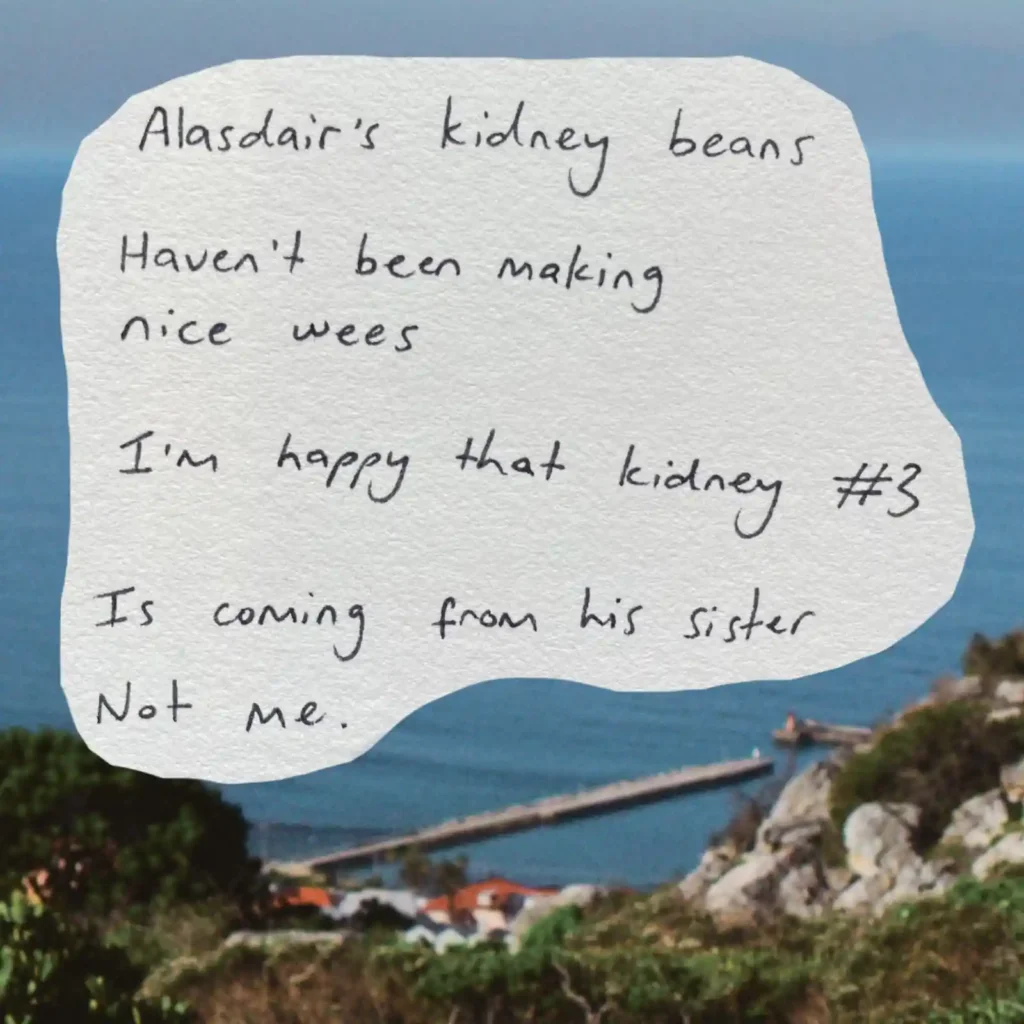 Alasdair's kidney beans
Haven't been making
nice wees
I'm happy that kidney #3
Is coming from his sister
Not me.